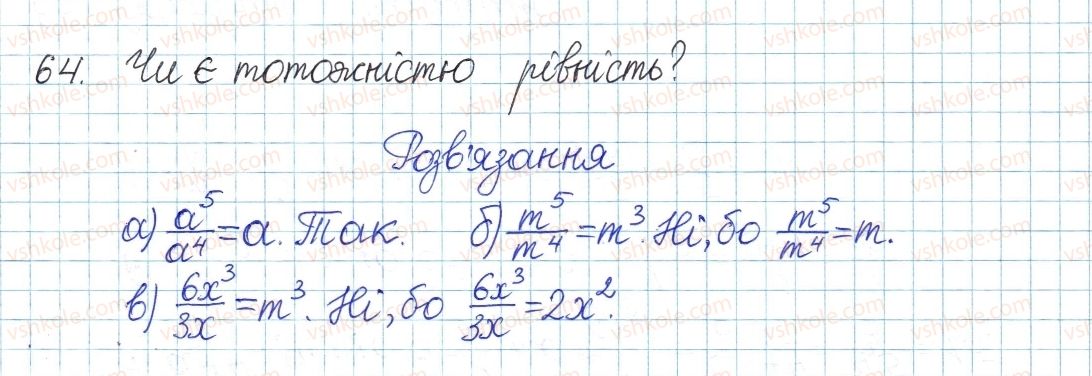 64. Чи є тотожністю рівність?
Розв'язання
а) a⁵/a⁴ = a. Так. б) m⁵/m⁴ = m³. Ні, бо m⁵/m⁴ = m.
в) 6x³/3x = m³. Ні, бо 6x³/3x = 2x².